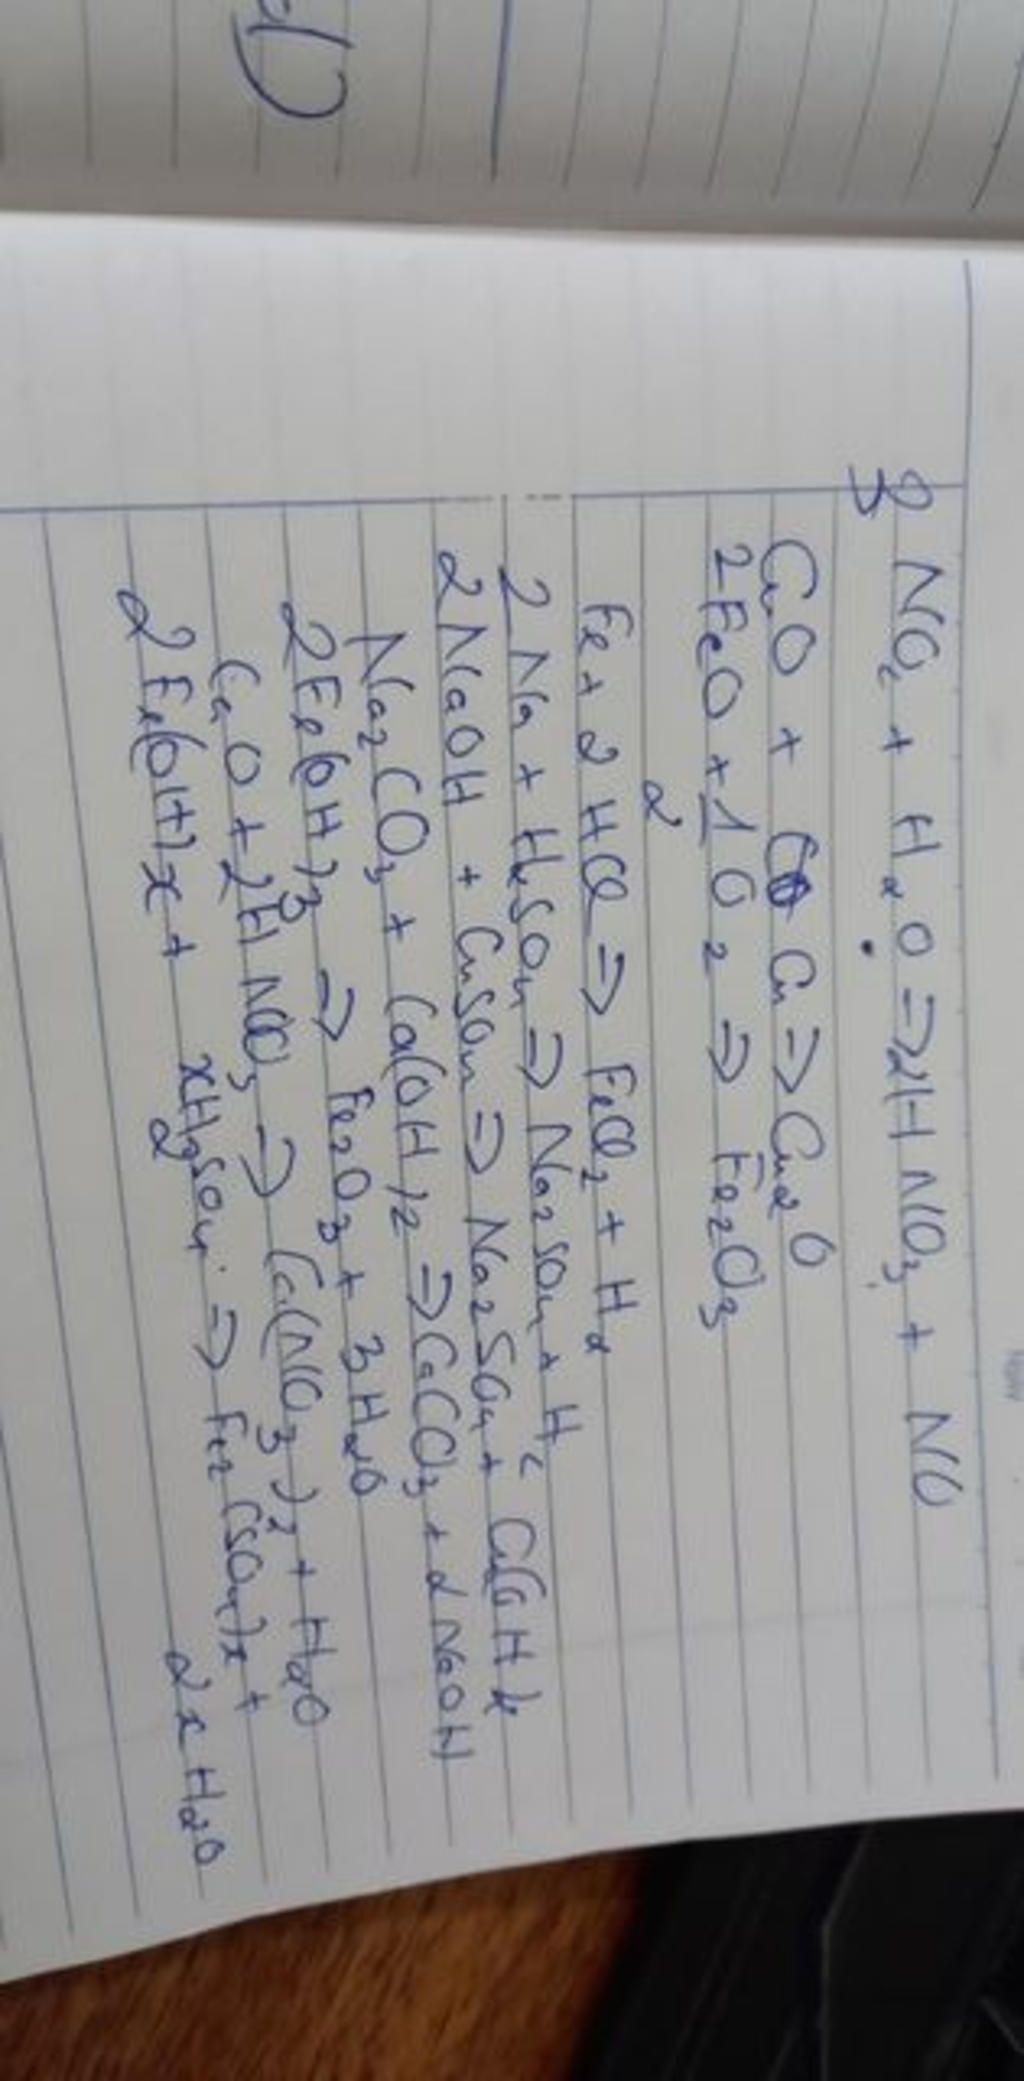 d)
3 NO2 + H2O => 2HNO3 + NO
CuO + Cu => Cu2O
2FeO + 1/2 O2 => Fe2O3
Fe + 2HCl => FeCl2 + H2
2Na + H2SO4 => Na2SO4 + H2
2NaOH + CuSO4 => Na2SO4 + Cu(OH)2
Na2CO3 + Ca(OH)2 => CaCO3 + 2NaOH
2Fe(OH)3 => Fe2O3 + 3H2O
CaO + 2HNO3 => Ca(NO3)2 + H2O
2Fe(OH)x + xH2SO4 => Fe2(SO4)x +
2xH2O